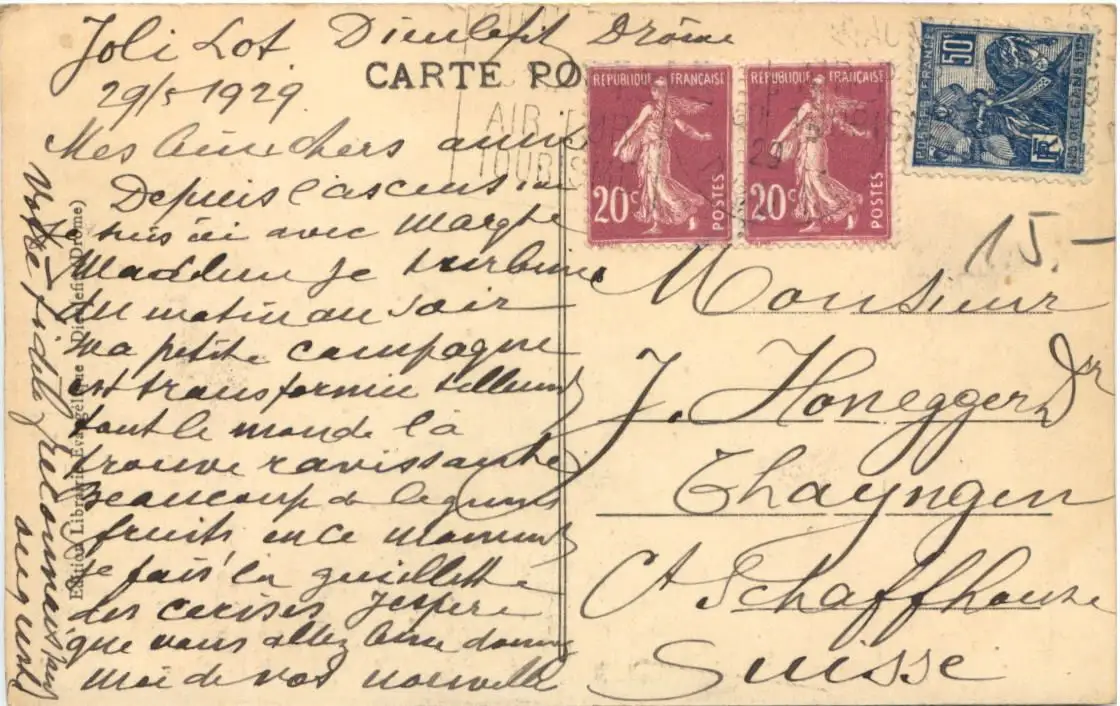 Joli Lot Dieulefit Drôme
29/5 1929
CARTE PO
Mes bien chers amis
Depuis l'ascension
Je suis ici avec Margte
Maddlene je turbine
du matin au soir
ma petite campagne
est transformée tellement
tout le monde la
trouve ravissante
Beaucoup de legumes
fruits en ce moment
je fais la queillette
des cerises J'espere
que vous allez bien donnez
moi de vos nouvelle
Votre fidèle
Edition Librairie Evangélique (Dieulefit Drôme)
RÉPUBLIQUE FRANÇAISE
20c POSTES
RÉPUBLIQUE FRANÇAISE
20c POSTES
50
POSTES FRANCE
RF
AIR PUR
TOURISME
15.-
Monsieur
J. Honegger Dr
Thayngen
Ct Schaffhouse
Suisse